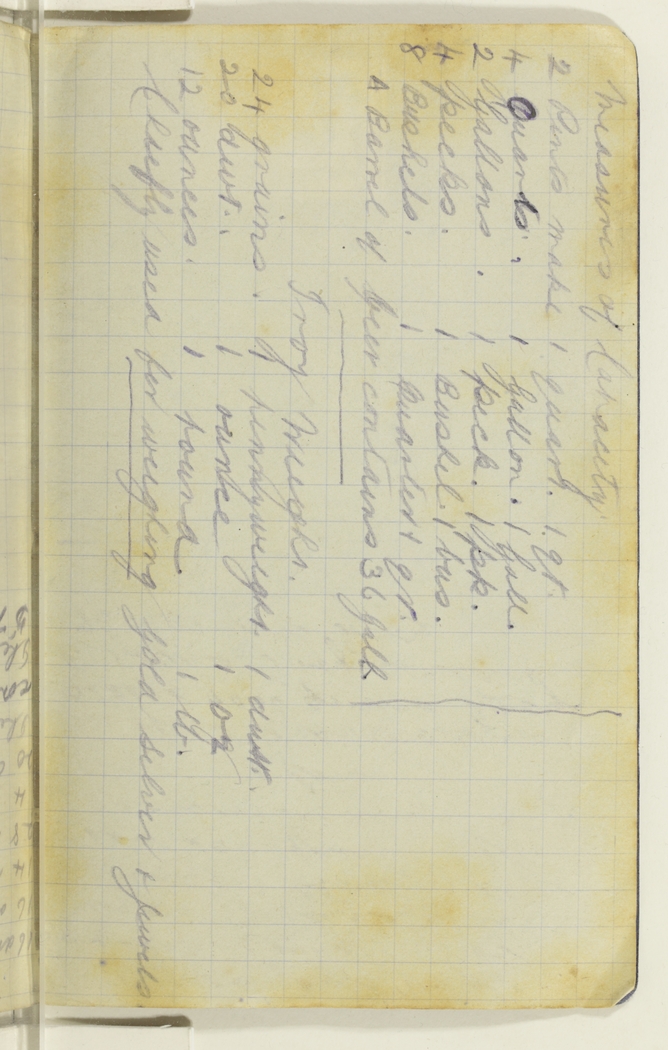 Measures of Capacity
2 Pints make 1 quart. 1 qt.
4 Quarts. 1 Gallon. 1 Gall.
2 Gallons. 1 Peck. 1 pk.
4 Pecks. 1 Bushel. 1 bus.
8 Bushels. 1 Quarter 1 qr.
A Barrel of Beer contains 36 galls
Troy Weight.
24 grains. 1 pennyweight. 1 dwt.
20 dwt. 1 ounce 1 oz
12 ounces. 1 pound. 1 lb.
Chiefly used for weighing gold silver & jewels